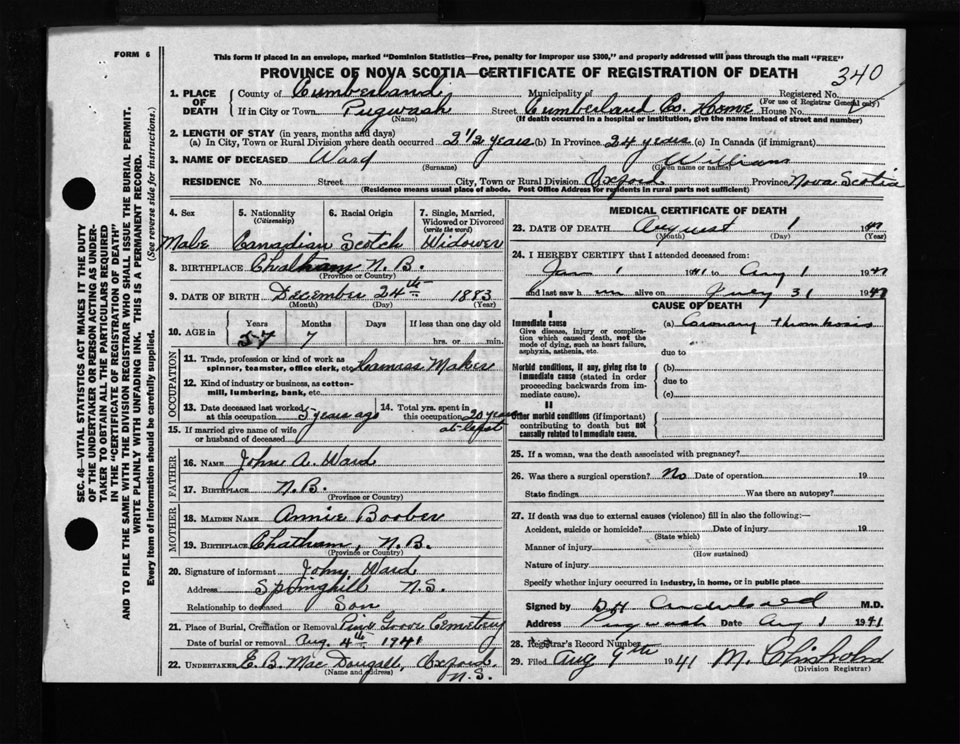 FORM 6
This form if placed in an envelope, marked "Dominion Statistics—Free, penalty for improper use $300," and properly addressed will pass through the mail "FREE"
PROVINCE OF NOVA SCOTIA—CERTIFICATE OF REGISTRATION OF DEATH
340
SEC. 46—VITAL STATISTICS ACT MAKES IT THE DUTY
OF THE UNDERTAKER OR PERSON ACTING AS UNDER-
TAKER TO OBTAIN ALL THE PARTICULARS REQUIRED
IN THE "CERTIFICATE OF REGISTRATION OF DEATH"
AND TO FILE THE SAME WITH THE DIVISION REGISTRAR WHO SHALL ISSUE THE BURIAL PERMIT.
WRITE PLAINLY WITH UNFADING INK. THIS IS A PERMANENT RECORD.
Every item of information should be carefully supplied. (See reverse side for instructions.)
1. PLACE OF DEATH County of Cumberland Municipality of Registered No.
(For use of Registrar General only)
If in City or Town Pugwash Street Cumberland Co. Home House No
(Name) (If death occurred in a hospital or institution, give the name instead of street and number)
2. LENGTH OF STAY (in years, months and days)
(a) In City, Town or Rural Division where death occurred 2 1/2 years (b) In Province 24 years (c) In Canada (if immigrant)
3. NAME OF DECEASED Ward William
(Surname) (Given name or names)
RESIDENCE No. Street City, Town or Rural Division Oxford Province Nova Scotia
(Residence means usual place of abode. Post Office Address for residents in rural parts not sufficient)
4. Sex 5. Nationality (Citizenship) 6. Racial Origin 7. Single, Married, Widowed or Divorced (write the word)
Male Canadian Scotch Widower
8. BIRTHPLACE Chatham N.B.
(Province or Country)
9. DATE OF BIRTH December 24th 1883
(Month) (Day) (Year)
10. AGE in Years Months Days If less than one day old
57 7 hrs. or min.
OCCUPATION
11. Trade, profession or kind of work as spinner, teamster, office clerk, etc. Harness Maker
12. Kind of industry or business, as cotton-mill, lumbering, bank, etc.
13. Date deceased last worked at this occupation 5 years ago 14. Total yrs. spent in this occupation 20 years
at least
15. If married give name of wife or husband of deceased
FATHER
16. NAME John A. Ward
17. BIRTHPLACE N.B.
(Province or Country)
MOTHER
18. MAIDEN NAME Annie Boober
19. BIRTHPLACE Chatham, N.B.
(Province or Country)
20. Signature of informant John Ward
Address Springhill N.S.
Relationship to deceased Son
21. Place of Burial, Cremation or Removal Pine Grove Cemetery
Date of burial or removal Aug. 4th 1941
22. UNDERTAKER E. B. MacDougall, Oxford.
(Name and address) N.S.
MEDICAL CERTIFICATE OF DEATH
23. DATE OF DEATH August 1 1941
(Month) (Day) (Year)
24. I HEREBY CERTIFY that I attended deceased from:
Jan 1 1941 to Aug 1 1941
and last saw him alive on July 31 1941
CAUSE OF DEATH
I
Immediate cause (a) Coronary thrombosis
Give disease, injury or complication which caused death, not the mode of dying, such as heart failure, asphyxia, asthenia, etc.
due to
Morbid conditions, if any, giving rise to immediate cause (stated in order proceeding backwards from immediate cause).
(b)
due to
(c)
II
Other morbid conditions (if important) contributing to death but not causally related to immediate cause.
25. If a woman, was the death associated with pregnancy?
26. Was there a surgical operation? No Date of operation 19
State findings Was there an autopsy?
27. If death was due to external causes (violence) fill in also the following:—
Accident, suicide or homicide? Date of injury 19
(State which)
Manner of injury
(How sustained)
Nature of injury
Specify whether injury occurred in industry, in home, or in public place
Signed by M.D.
Address Pugwash Date Aug 1 1941
28. Registrar's Record Number
29. Filed Aug 9th 1941 M. Chisholm
(Division Registrar)